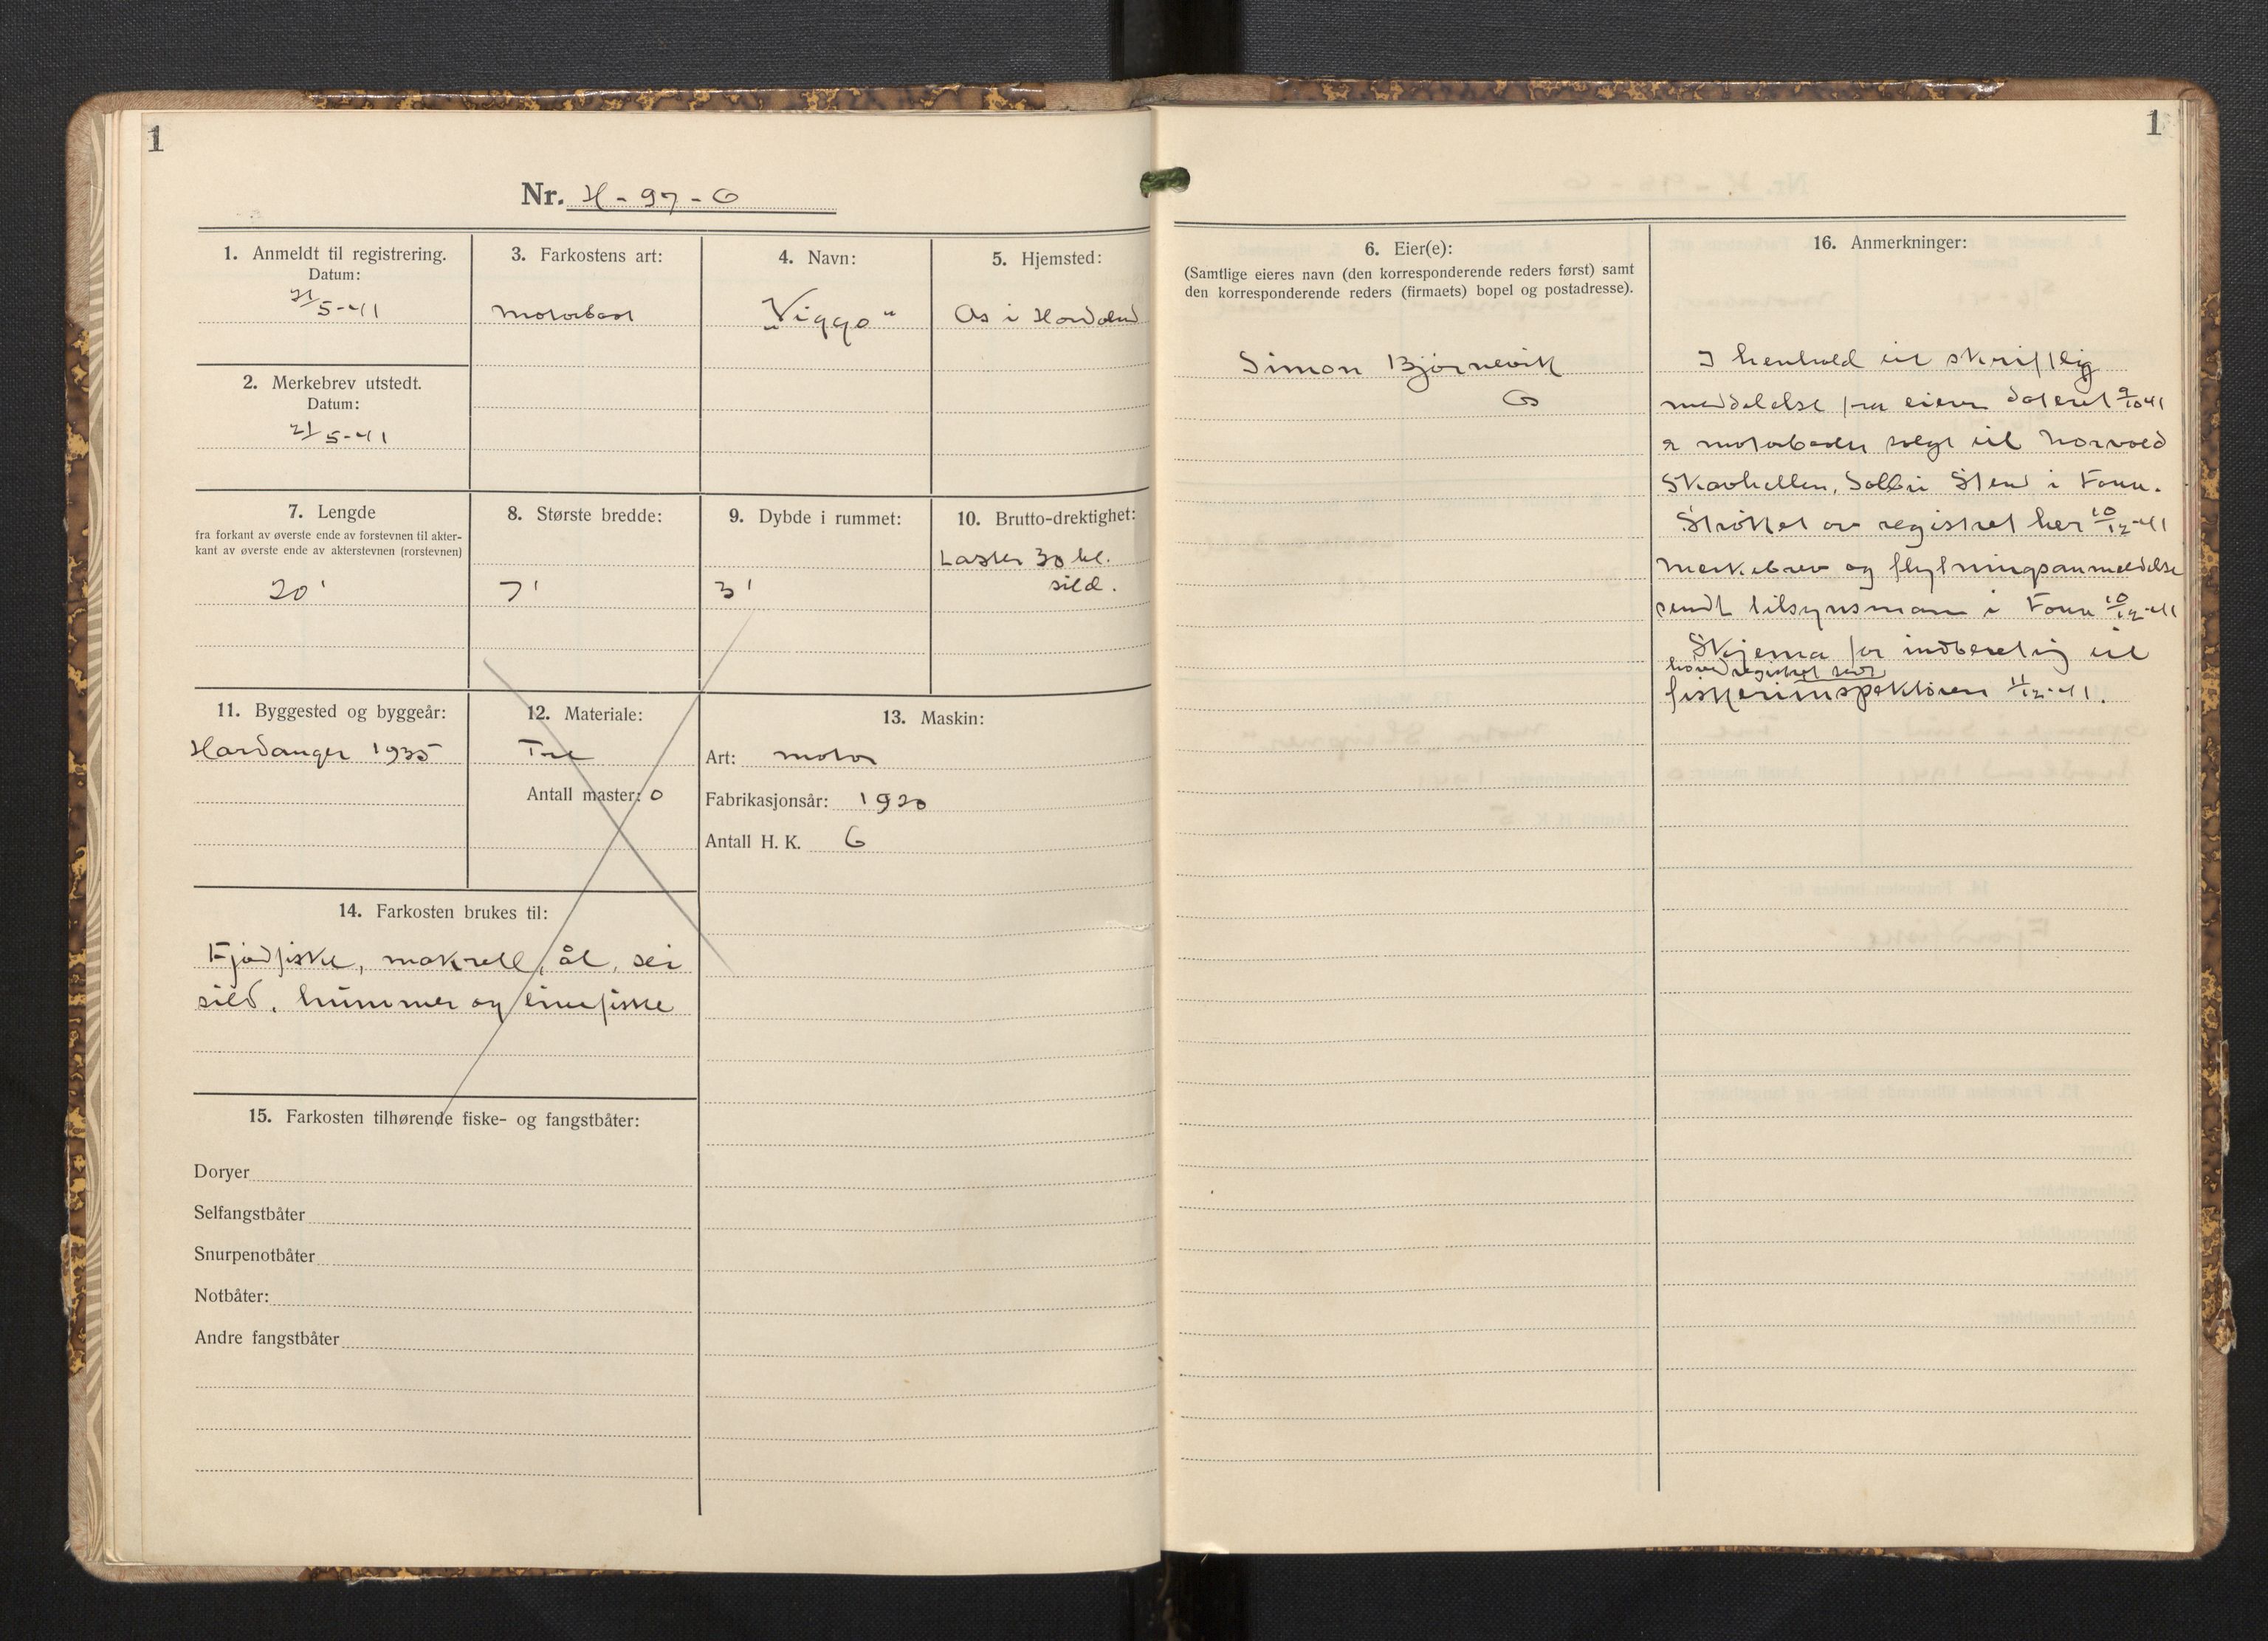 1
Nr. H - 97 - O
1. Anmeldt til registrering.
Datum:
21/5-41
2. Merkebrev utstedt.
Datum:
21/5-41
3. Farkostens art:
Motorbaat
4. Navn:
„Viggo“
5. Hjemsted:
Os i Hordaland
7. Lengde
fra forkant av øverste ende av forstevnen til akter-
kant av øverste ende av akterstevnen (rorstevnen)
20'
8. Største bredde:
7'
9. Dybde i rummet:
3'
10. Brutto-drektighet:
Laster 30 hl.
sild.
11. Byggested og byggeår:
Hardanger 1935
12. Materiale:
Tre
Antall master: 0
13. Maskin:
Art: motor
Fabrikasjonsår: 1920
Antall H. K. 6
14. Farkosten brukes til:
Fjordfiske, makrell, ål, sei
sild, hummer og linefiske
15. Farkosten tilhørende fiske- og fangstbåter:
Doryer
Selfangstbåter
Snurpenotbåter
Notbåter:
Andre fangstbåter
1
6. Eier(e):
(Samtlige eieres navn (den korresponderende reders først) samt
den korresponderende reders (firmaets) bopel og postadresse).
Simon Bjørnevik
Os
16. Anmerkninger:
I henhold til skriftlig
meddelelse fra eieren datert 9/10 41
er motorbaaten solgt til Norvald
Skavhellen, Stend i Fana.
Strøket av registret her 10/12-41
Merkebrev og flytningsanmeldelse
sendt tilsynsmann i Fana 10/12-41
Skjema for indberetnig til
hovedregistret sendt
fiskeriinspektøren 11/12-41.